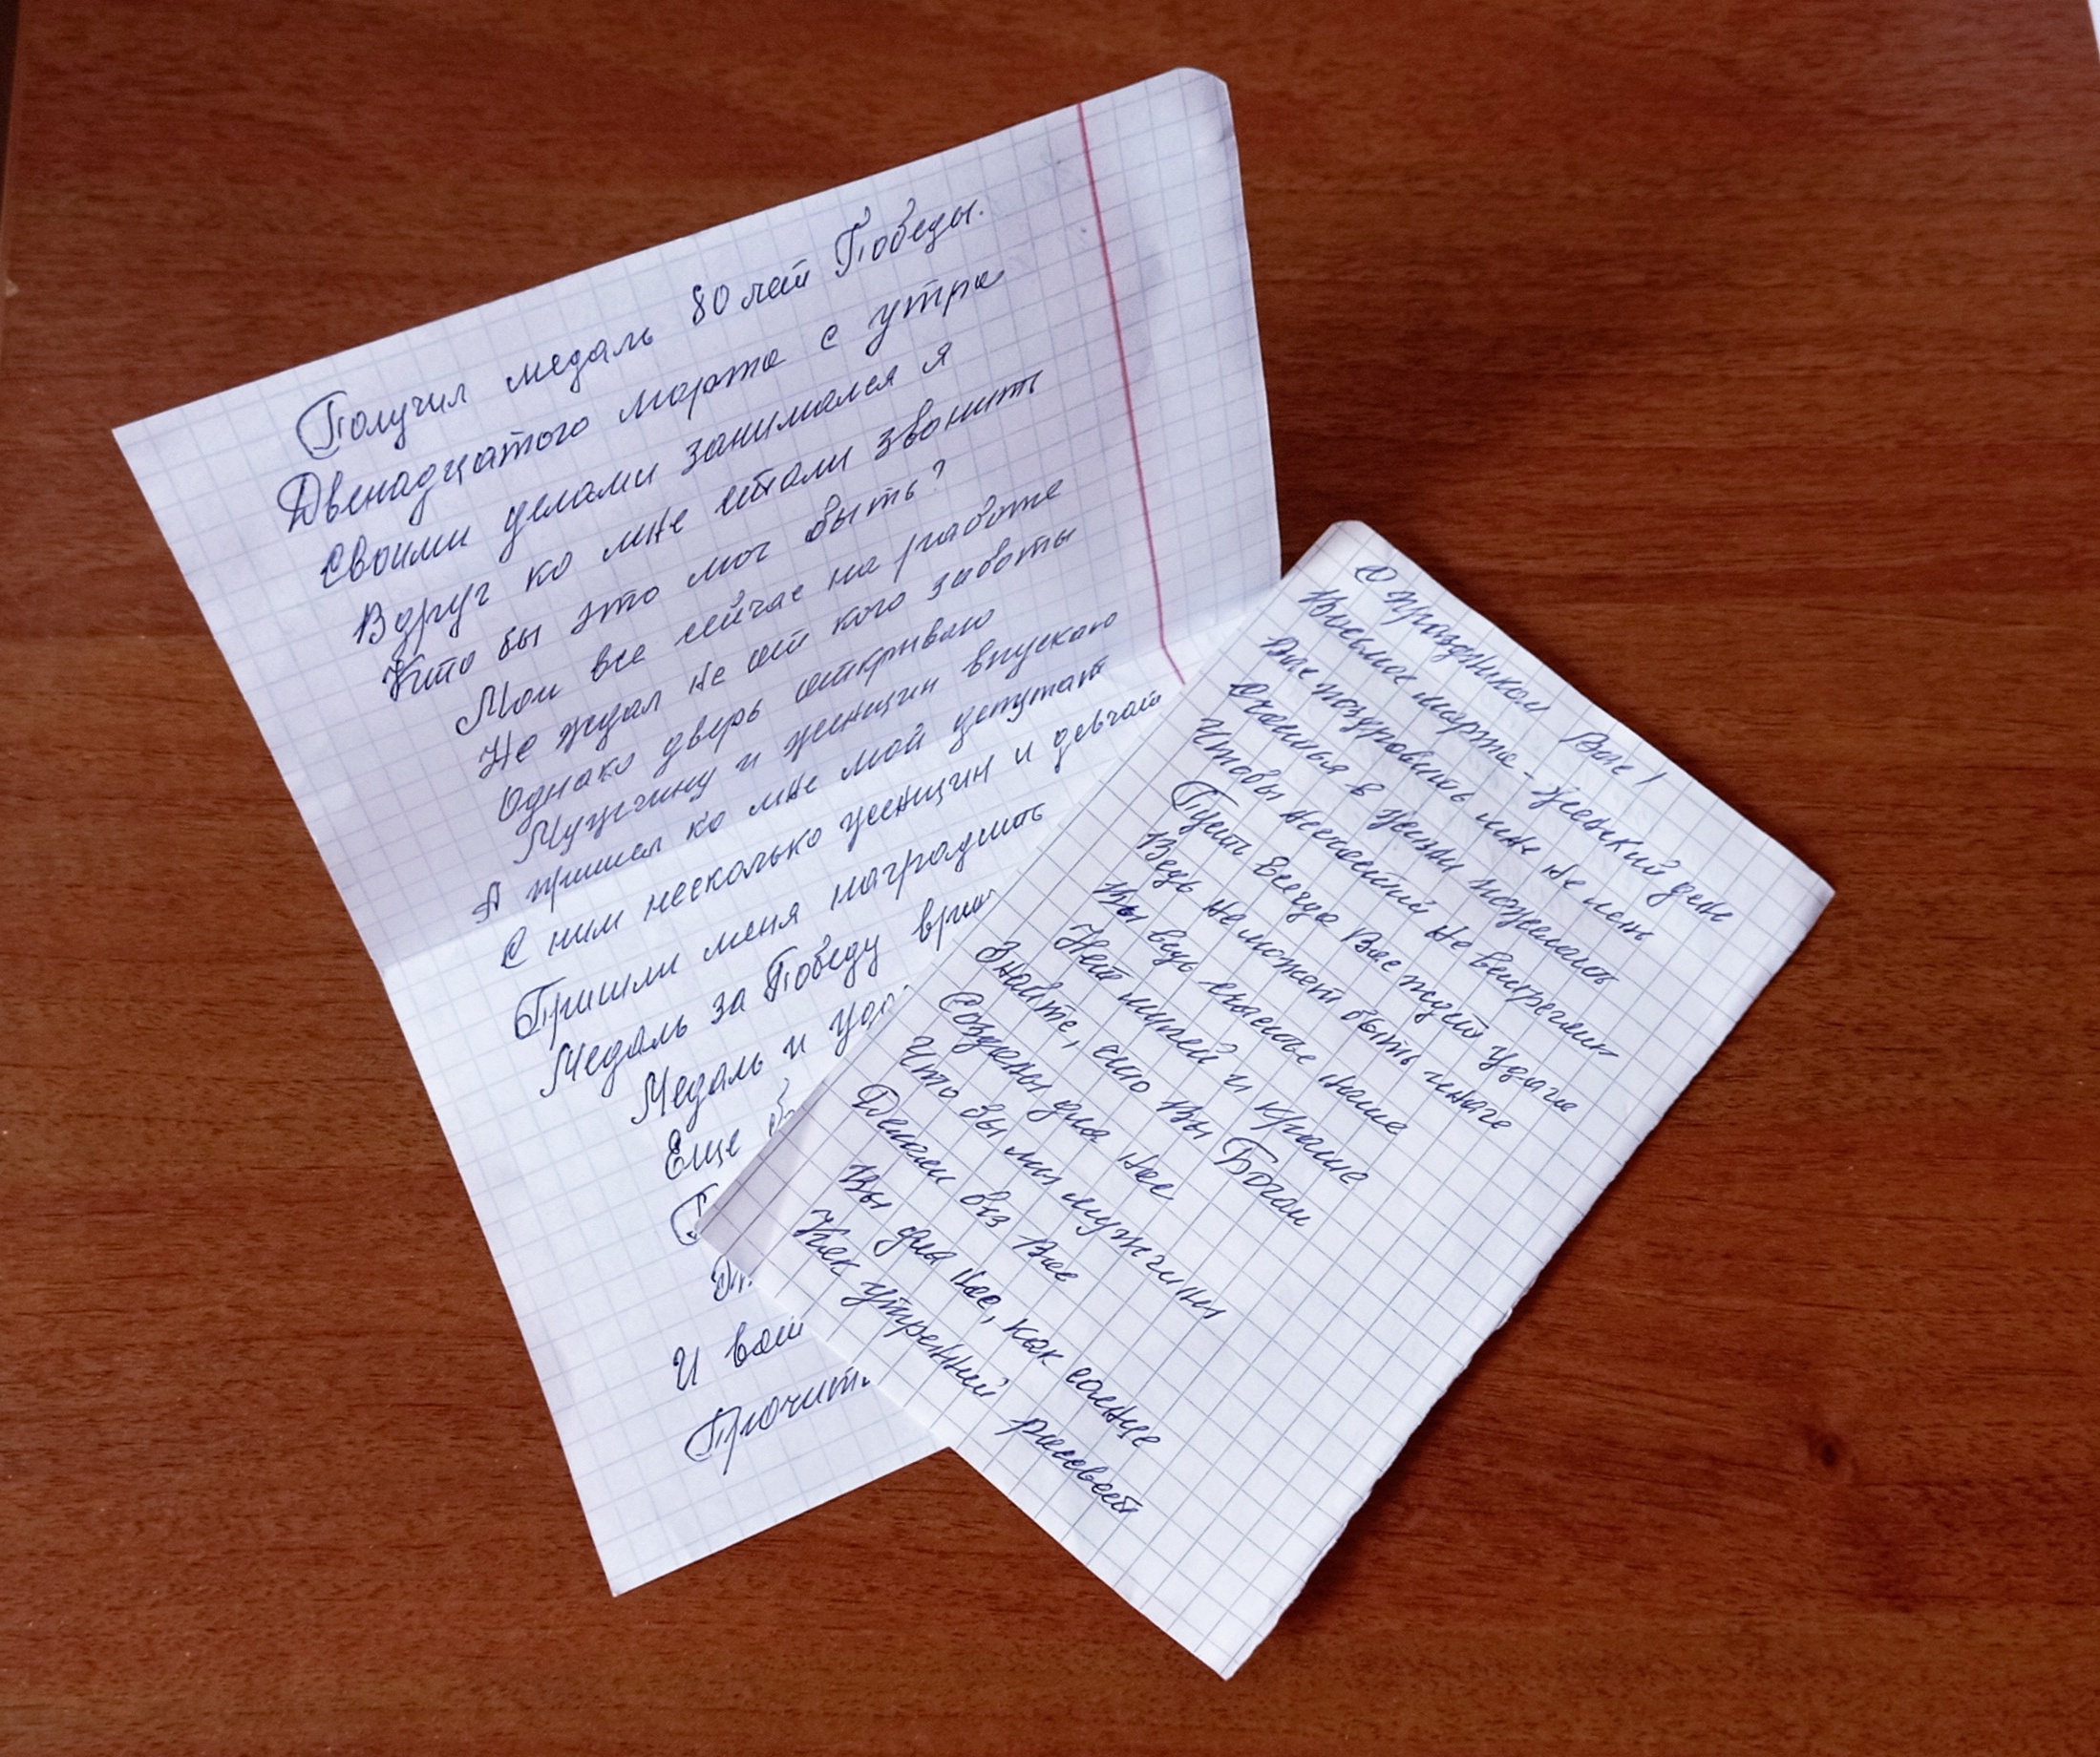 Получил медаль 80 лет Победы.
Двенадцатого марта с утра
Своими делами занимался я
Вдруг ко мне стали звонить
Кто бы это мог быть?
Мои все сейчас на работе
Не ждал не от кого заботы
Однако дверь открываю
Мужчину и женщин впускаю
А пришел ко мне мой депутат
С ним несколько женщин и девчат
Пришли меня наградить
Медаль за Победу
Медаль и
Еще
И
С праздником Вас!
Восьмое марта - женский день
Вас поздровить мне не лень
Счастья в жизни пожелать
Чтобы несчастий не встречать
Пусть всегда Вас ждет удача
Ведь не может быть иначе
Вы ведь счастье наше
Нет милей и краше
Знайте, что Вы Богом
Созданы для нас
Что бы мы мужчины
Делали без Вас
Вы для нас, как солнце
Как утренний рассвет